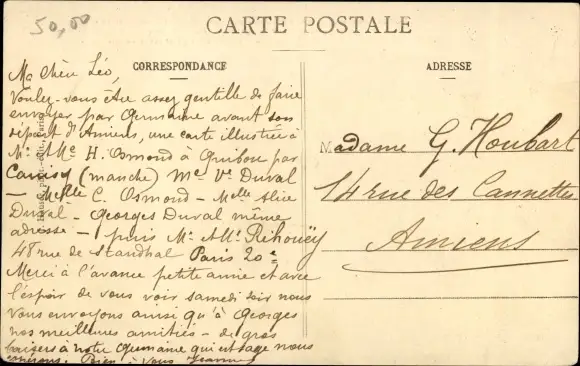 50,00
CARTE POSTALE
CORRESPONDANCE
ADRESSE
Ma Chère Léo,
Voulez-vous être assez gentille de faire
envoyer par Germaine avant son
départ d'Amiens, une carte illustrée à
Mr & Me H. Osmond à Quibou par
Canisy (manche) Me Ve Duval
— Melle C. Osmond - Melle Alice
Duval - Georges Duval même
adresse - puis Mr & Me Rihouëy
48 rue de Standhal Paris 20e
Merci à l'avance petite amie et avec
l'espoir de vous voir samedi soir nous
vous envoyons ainsi qu'à Georges
nos meilleures amitiés - de gros
baisers à notre Germaine qui est sage nous
Bien à vous Jeanne
Madame G. Houbart
14 rue des Cannettes
Amiens